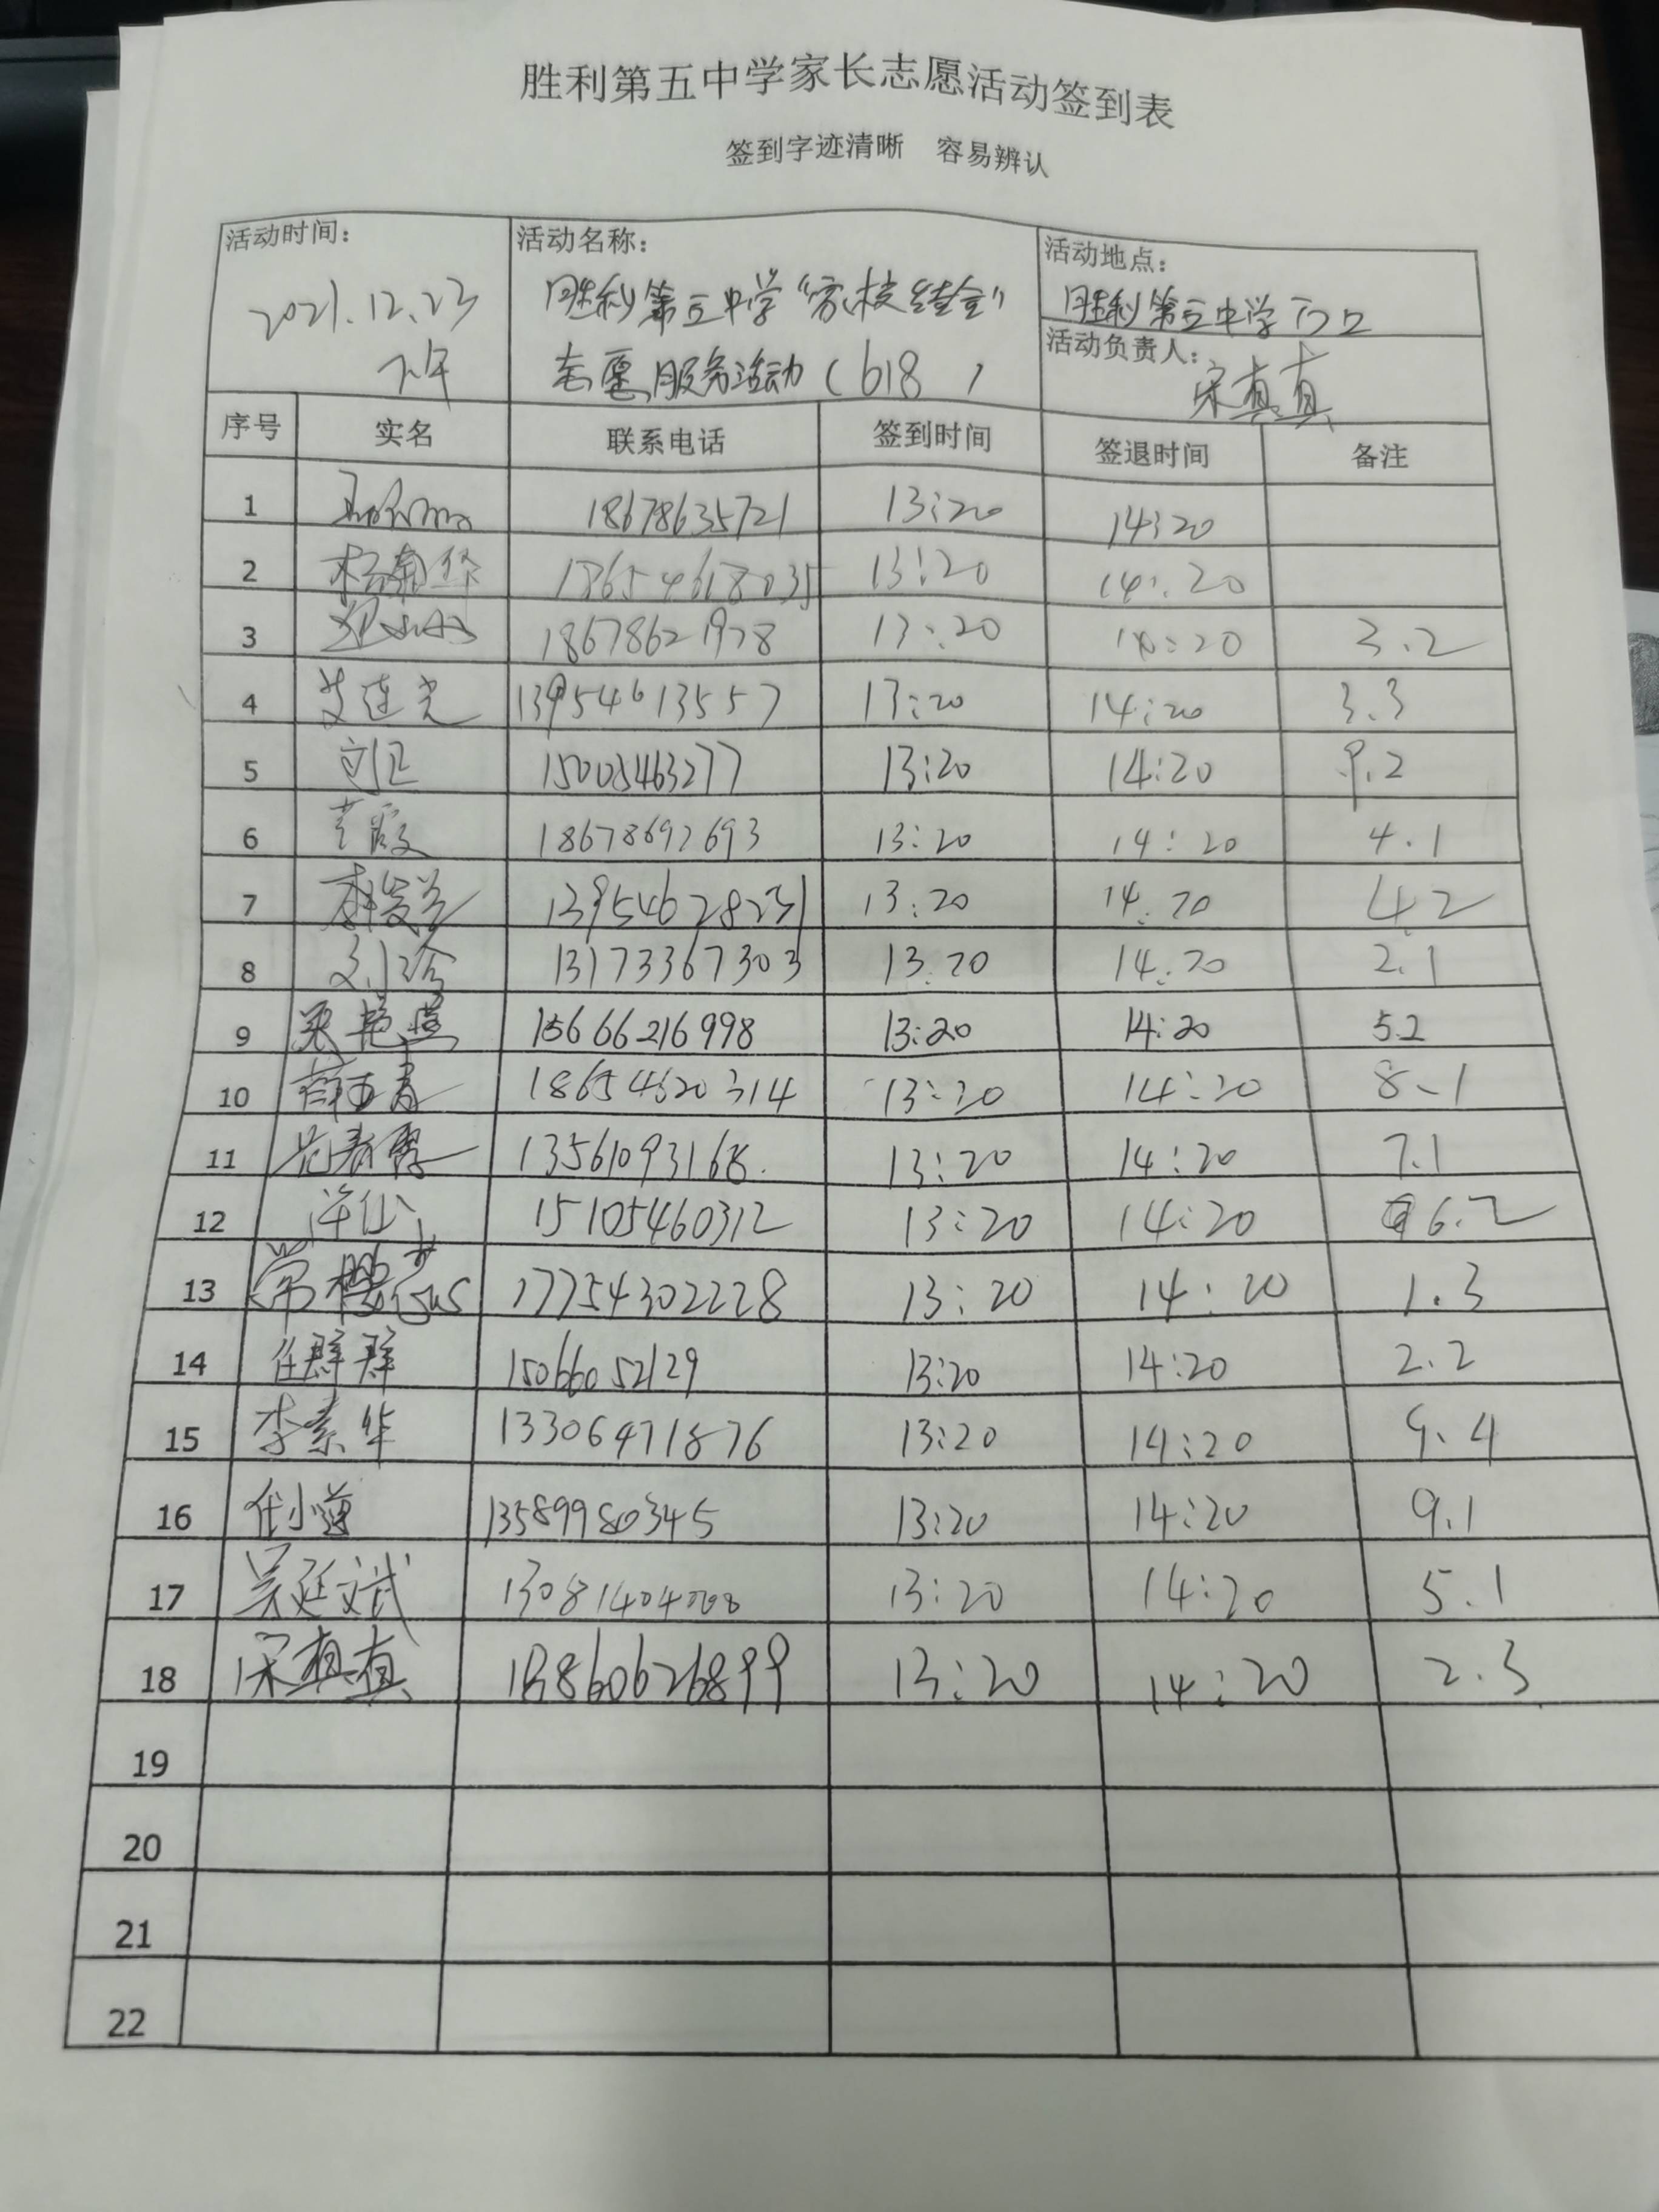 胜利第五中学家长志愿活动签到表
签到字迹清晰 容易辨认
活动时间： 活动名称： 活动地点：
2021.12.23 胜利第五中学“家校结合” 胜利第五中学门口
下午 志愿服务活动（618） 活动负责人：宋真真
序号 实名 联系电话 签到时间 签退时间 备注
1 18678635721 13:20 14:20
2 杨南华 18654618035 13:20 14:20
3 18678621978 13:20 14:20 3.2
4 艾连光 13954613557 13:20 14:20 3.3
5 15005463277 13:20 14:20 9.2
6 18678692693 13:20 14:20 4.1
7 13954628231 13:20 14:20 4.2
8 13173367303 13:20 14:20 2.1
9 15666216998 13:20 14:20 5.2
10 18654620314 13:20 14:20 8.1
11 13561093168 13:20 14:20 7.1
12 15105460312 13:20 14:20 6.2
13 常樱 17754302228 13:20 14:20 1.3
14 任群群 15066052129 13:20 14:20 2.2
15 李素华 13306471876 13:20 14:20 9.4
16 任小莲 13589980345 13:20 14:20 9.1
17 吴延斌 13:20 14:20 5.1
18 宋真真 13:20 14:20 2.3
19
20
21
22